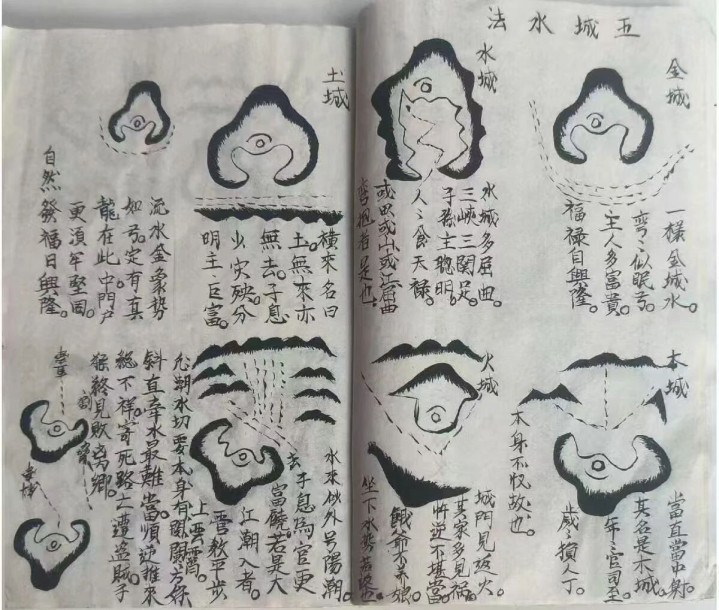 五城水法
金城
一樣金城水。
弯々似眠弓。
主人多富貴。
福禄自興隆。
水城
水城多屈曲。
三峽三関足。
子孫主聰明。
人々食天禄。
或山或江屈曲
弯抱者是也。
木城
當直當中射。
其名是木城。
年々官司至。
歲々損人丁。
本身不故也。
火城
城門見破火。
其家多見禍。
忤逆不堪當。
餓爺不养娘。
坐下水势若破也
土城
橫來名曰
土。無來亦
無去。子息
少灾殃。分
明主巨富。
流水金象势
如弓。定有真
龍在此中。門户
更須牢堅固。
自然發福日興隆。
水來似外号陽潮。
去
子息為官更
富饒。若是大
江潮入者。
管教平步
上雲霄。
凡潮水切要本身有関闌方保
斜直牵水最難當。順逆推來
總不祥。寄死路上遭盗賊。子
孫終見敗离鄉。